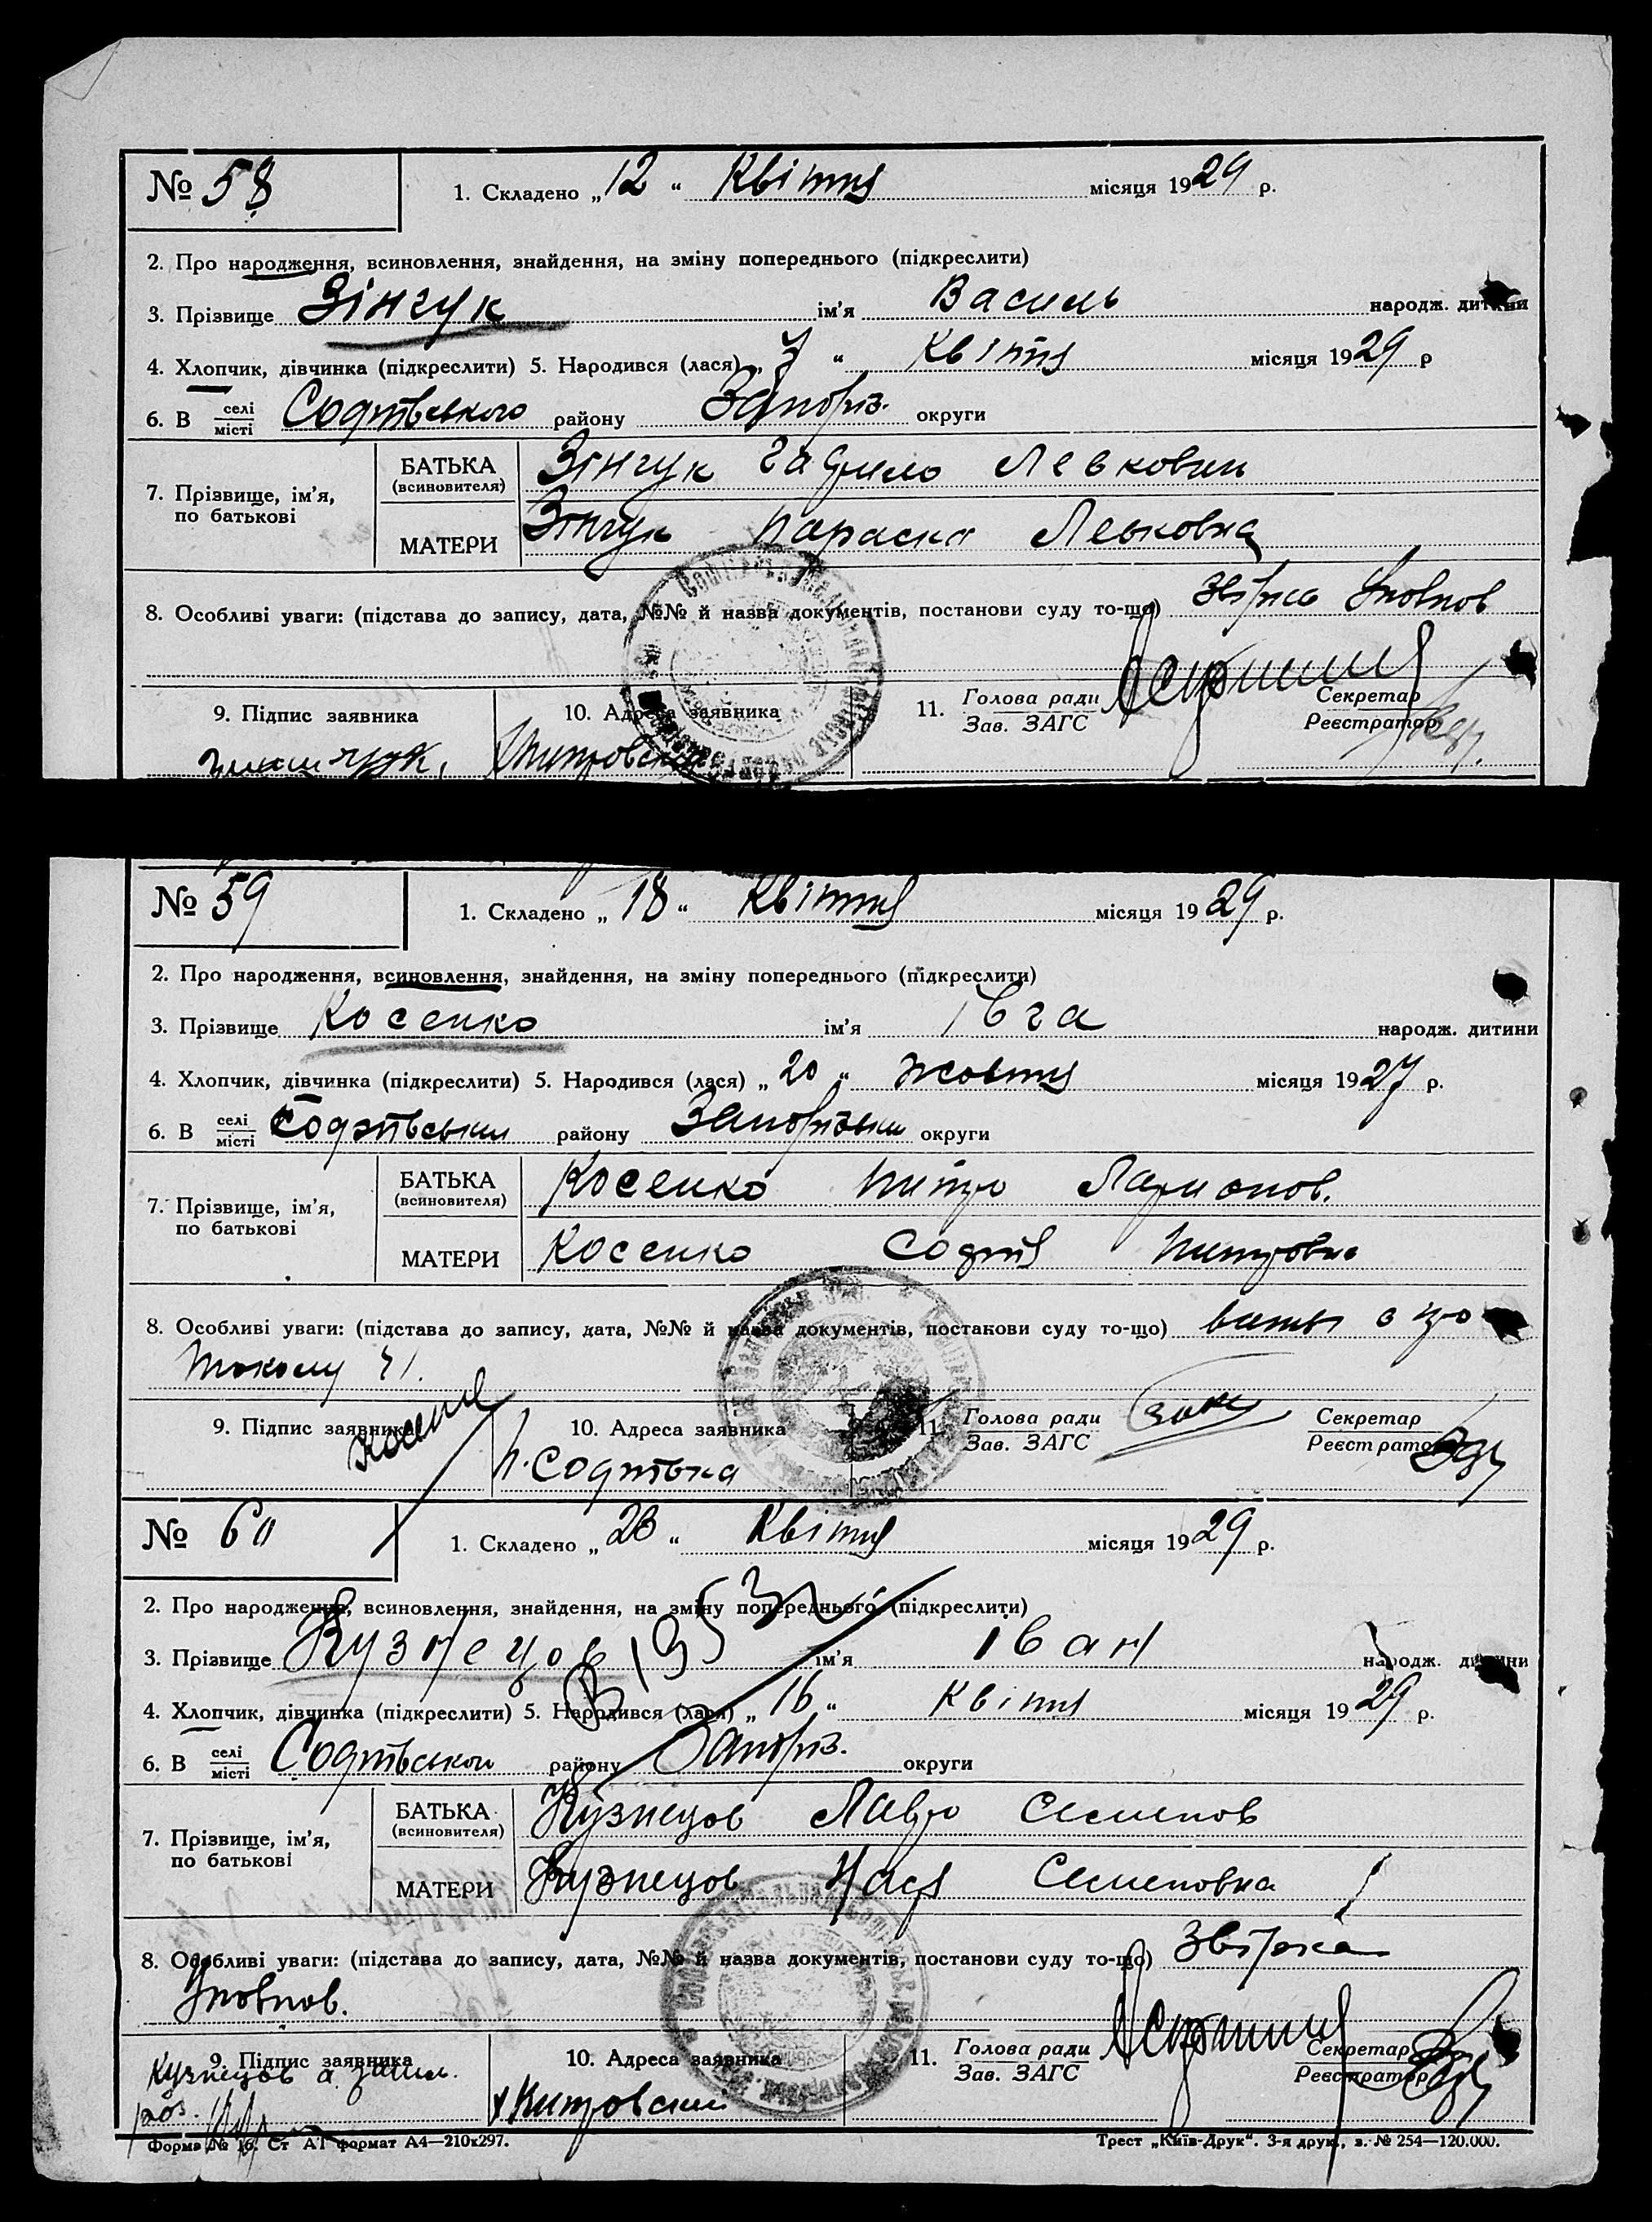 № 58 1. Складено „12“ Квітня місяця 1929 р.
2. Про народження, всиновлення, знайдення, на зміну попереднього (підкреслити)
3. Прізвище Зінчук ім'я Василь народж. дитини
4. Хлопчик, дівчинка (підкреслити) 5. Народився (лася) „ “ Квітня місяця 1929 р
6. В селі місті Софіївського району Запоріз. округи
7. Прізвище, ім'я, по батькові БАТЬКА (всиновителя) Зінчук Гаврило Левкович
МАТЕРИ Зінчук Параска Левковна
8. Особливі уваги: (підстава до запису, дата, №№ й назва документів, постанови суду то-що)
9. Підпис заявника 10. Адреса заявника 11. Голова ради Зав. ЗАГС Секретар Реєстратор
№ 59 1. Складено „18“ Квітня місяця 1929 р.
2. Про народження, всиновлення, знайдення, на зміну попереднього (підкреслити)
3. Прізвище Косенко ім'я Івга народж. дитини
4. Хлопчик, дівчинка (підкреслити) 5. Народився (лася) „20“ жовтня місяця 1927 р.
6. В селі місті Софіївськи району Запорізьки округи
7. Прізвище, ім'я, по батькові БАТЬКА (всиновителя) Косенко Ларионов.
МАТЕРИ Косенко Софія Питровна
8. Особливі уваги: (підстава до запису, дата, №№ й назва документів, постанови суду то-що) витяг з про
токолу
9. Підпис заявника 10. Адреса заявника 11. Голова ради Зав. ЗАГС Секретар Реєстратор
Косенко с. Софіївка
№ 60 1. Складено „23“ Квітня місяця 1929 р.
2. Про народження, всиновлення, знайдення, на зміну попереднього (підкреслити)
3. Прізвище Кузнецов ім'я Іван народж. дитини
4. Хлопчик, дівчинка (підкреслити) 5. Народився (лася) „16“ Квітня місяця 1929 р.
6. В селі місті Софіївськой району Запоріз. округи
7. Прізвище, ім'я, по батькові БАТЬКА (всиновителя) Кузнецов Лавро Семенов
МАТЕРИ Кузнецов Настя Семеновна
8. Особливі уваги: (підстава до запису, дата, №№ й назва документів, постанови суду то-що)
9. Підпис заявника 10. Адреса заявника 11. Голова ради Зав. ЗАГС Секретар Реєстратор
Кузнецов а за
Форма № 16. Ст А1 формат А4—210x297. Трест „Київ-Друк“. 3-я друк., з. № 254—120.000.